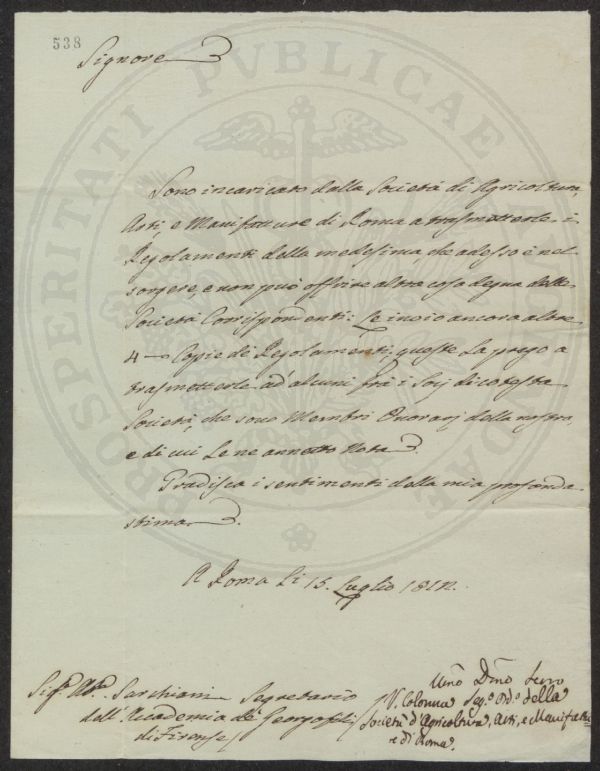 538
Signore
Sono incaricato dalla Società di Agricoltura,
Arti, e Manifatture di Roma a trasmetterle i
Regolamenti della medesima che adesso è nel
sorgere, e non può offrire altra cosa degna delle
Società Corrispondenti: Le invio ancora altre
4 - Copie di Regolamenti, queste La prego a
trasmetterle ad alcuni frà i Soci di cotesta
Società, che sono Membri Onorarj della nostra,
e di cui Le ne annetto Nota.
Gradisca i sentimenti della mia profonda
stima.
A Roma Li 15. Luglio 1812.
Sigr. Abe. Sarchiani Segretario
dell'Accademia de' Georgofili
di Firenze
Umo Dmo Servo
V. Colonna Sego. della
Società d'Agricoltura, Arti, e Manifatte
e di Roma.
PROSPERITATI PUBLICAE AUGENDAE